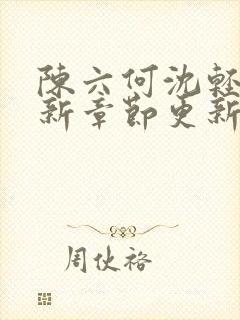 陳六何沈輕
新章節更新
周伙裕